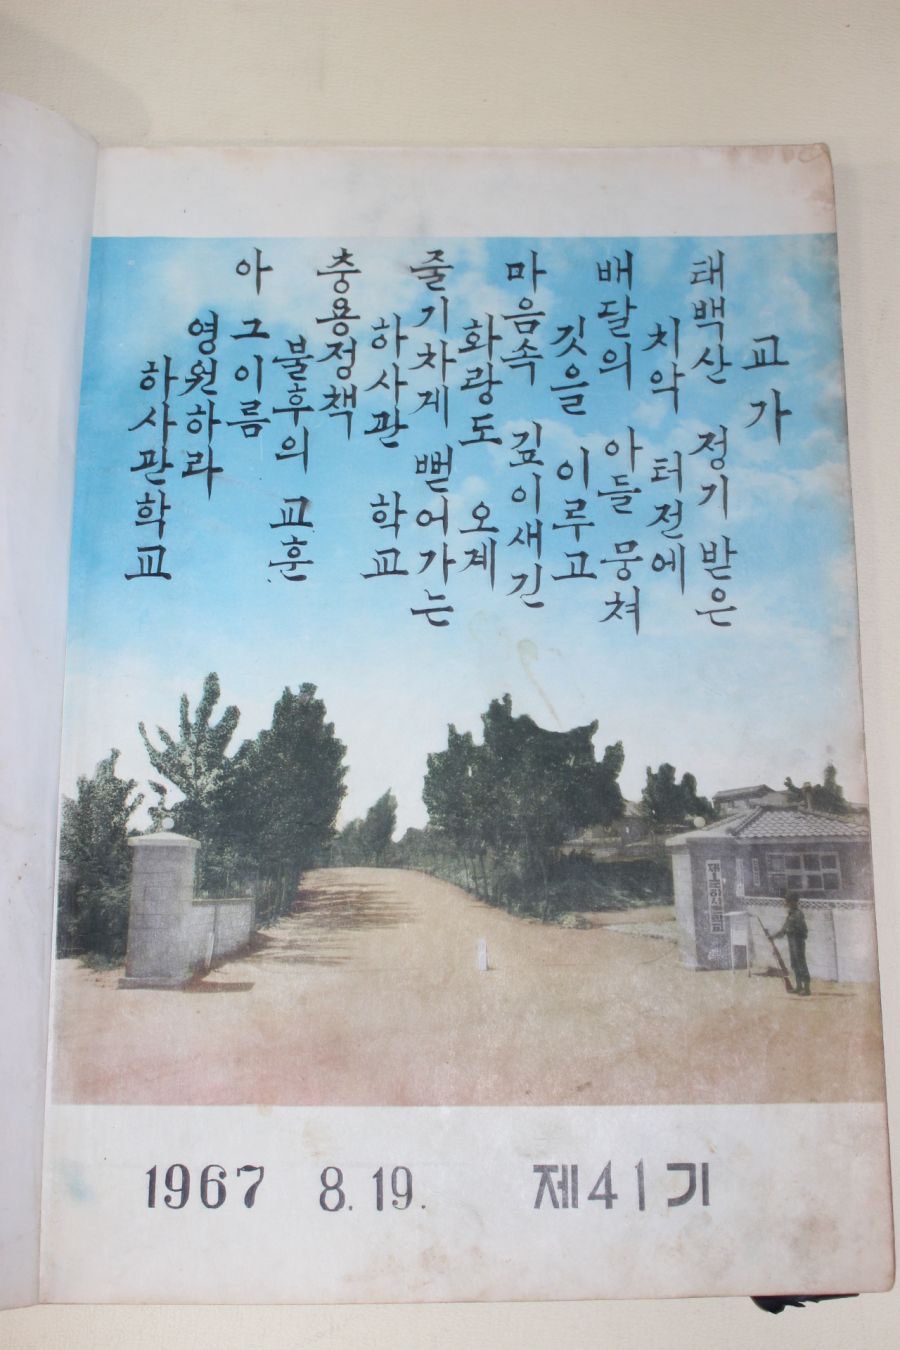 교가
태백산 정기 받은
치악 터전에
배달의 아들 뭉쳐
깃을 이루고
마음속 깊이새긴
화랑도 오계
줄기차게 뻗어가는
하사관 학교
충용정책
불후의 교훈
아 그이름
영원하라
하사관학교
1967 8.19. 제41기